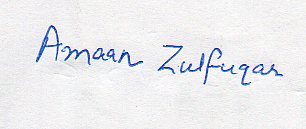 Amaan Zulfuqar